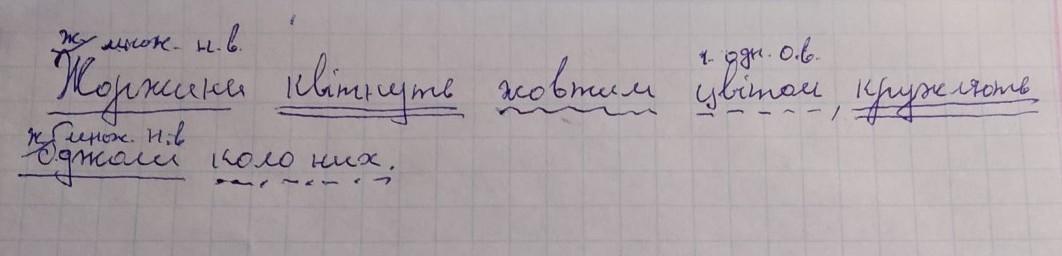 ж. множ. н.в.
ч. одн. о.в.
Жоржини квітнуть жовтим цвітом, кружляють
ж. множ. н.в
бджоли коло них.